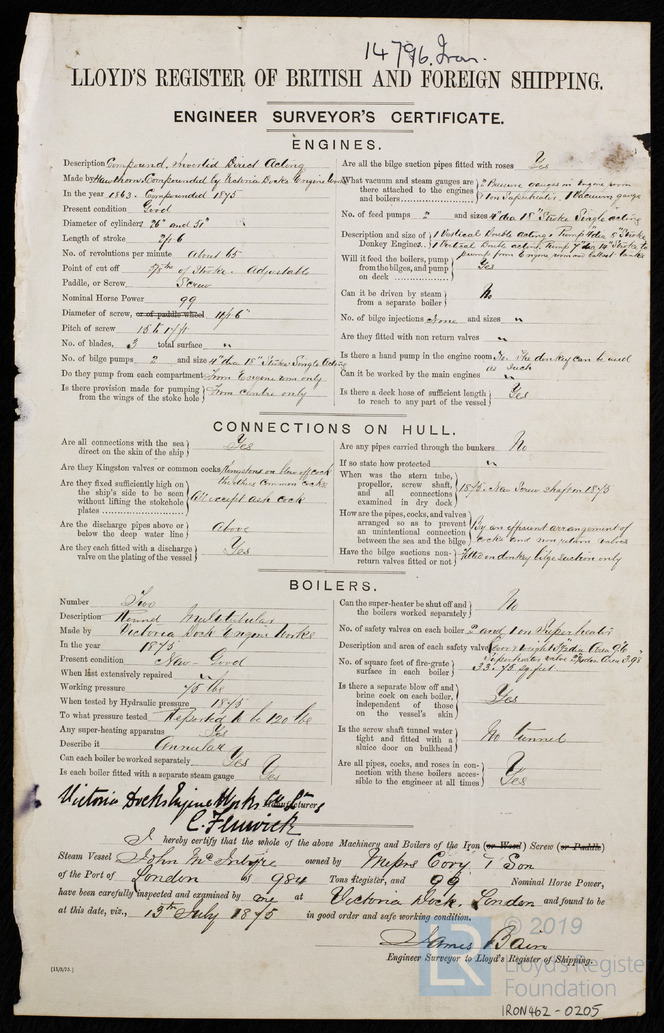 14796. Iron.
LLOYD'S REGISTER OF BRITISH AND FOREIGN SHIPPING.
ENGINEER SURVEYOR'S CERTIFICATE.
ENGINES.
Description Compound, Inverted Direct Acting
Made by Hawthorn. Compounded by Victoria Docks Engine Works
In the year 1863. Compounded 1875
Present condition Good
Diameter of cylinders 26" and 51"
Length of stroke 2ft 6
No. of revolutions per minute About 65
Point of cut off of Stroke. Adjustable
Paddle, or Screw Screw
Nominal Horse Power 99
Diameter of screw, or of paddle wheel 11ft 6"
Pitch of screw 15 to 17ft
No. of blades, 3 total surface "
No. of bilge pumps 2 and size 4" dia 18" Stroke Single acting
Do they pump from each compartment From Engine room only
Is there provision made for pumping from the wings of the stoke hole From centre only
Are all the bilge suction pipes fitted with roses Yes
What vacuum and steam gauges are there attached to the engines and boilers 2 Pressure gauges in Engine room
1 on Superheater. 1 Vacuum gauge
No. of feed pumps 2 and sizes 4" dia 18" Stroke Single acting
Description and size of Donkey Engines 1 Vertical Double acting Pump 4" dia 8" Stroke
1 Vertical Double acting Pump 7" dia 10" Stroke to
pump from Engine room and ballast tanks
Will it feed the boilers, pump from the bilges, and pump on deck Yes
Can it be driven by steam from a separate boiler No
No. of bilge injections One and sizes "
Are they fitted with non return valves "
Is there a hand pump in the engine room No. The donkey can be used
as such
Can it be worked by the main engines "
Is there a deck hose of sufficient length to reach to any part of the vessel Yes
CONNECTIONS ON HULL.
Are all connections with the sea direct on the skin of the ship Yes
Are they Kingston valves or common cocks Kingstons on blow off cock
the others Common cocks
Are they fixed sufficiently high on the ship's side to be seen without lifting the stokehole plates All except ash cock
Are the discharge pipes above or below the deep water line Above
Are they each fitted with a discharge valve on the plating of the vessel Yes
Are any pipes carried through the bunkers No
If so state how protected "
When was the stern tube, propellor, screw shaft, and all connections examined in dry dock 1875. New Screw Shaft in 1875
How are the pipes, cocks, and valves arranged so as to prevent an unintentional connection between the sea and the bilge By an efficient arrangement of
cocks and non return valves
Have the bilge suctions non-return valves fitted or not Fitted on donkey bilge suction only
BOILERS.
Number Two
Description Round Multitubular
Made by Victoria Dock Engine Works
In the year 1875
Present condition New - Good
When last extensively repaired "
Working pressure 75 lbs
When tested by Hydraulic pressure 1875
To what pressure tested Reported to be 120 lbs
Any super-heating apparatus Yes
Describe it Annular
Can each boiler be worked separately Yes
Is each boiler fitted with a separate steam gauge Yes
Can the super-heater be shut off and the boilers worked separately No
No. of safety valves on each boiler 2 and 1 on Superheater
Description and area of each safety valve
Superheater valve Area 3.98
No. of square feet of fire-grate surface in each boiler 33.75 sq feet
Is there a separate blow off and brine cock on each boiler, independent of those on the vessel's skin Yes
Is the screw shaft tunnel water tight and fitted with a sluice door on bulkhead No tunnel
Are all pipes, cocks, and roses in connection with these boilers accessible to the engineer at all times Yes
Victoria Docks Engine Works Manufacturers
C. Fenwick
I hereby certify that the whole of above Machinery and Boilers of the Iron (or Wood) Screw (or Paddle)
Steam Vessel John McIntyre owned by Messrs Cory & Son
of the Port of London of 984 Tons Register, and 99 Nominal Horse Power,
have been carefully inspected and examined by me at Victoria Dock, London and found to be
at this date, viz., 15th July 1875 in good order and safe working condition.
James Bain
Engineer Surveyor to Lloyd's Register of Shipping.
[15/3/75.]
© 2019
Lloyd's Register
Foundation
IRON462-0205